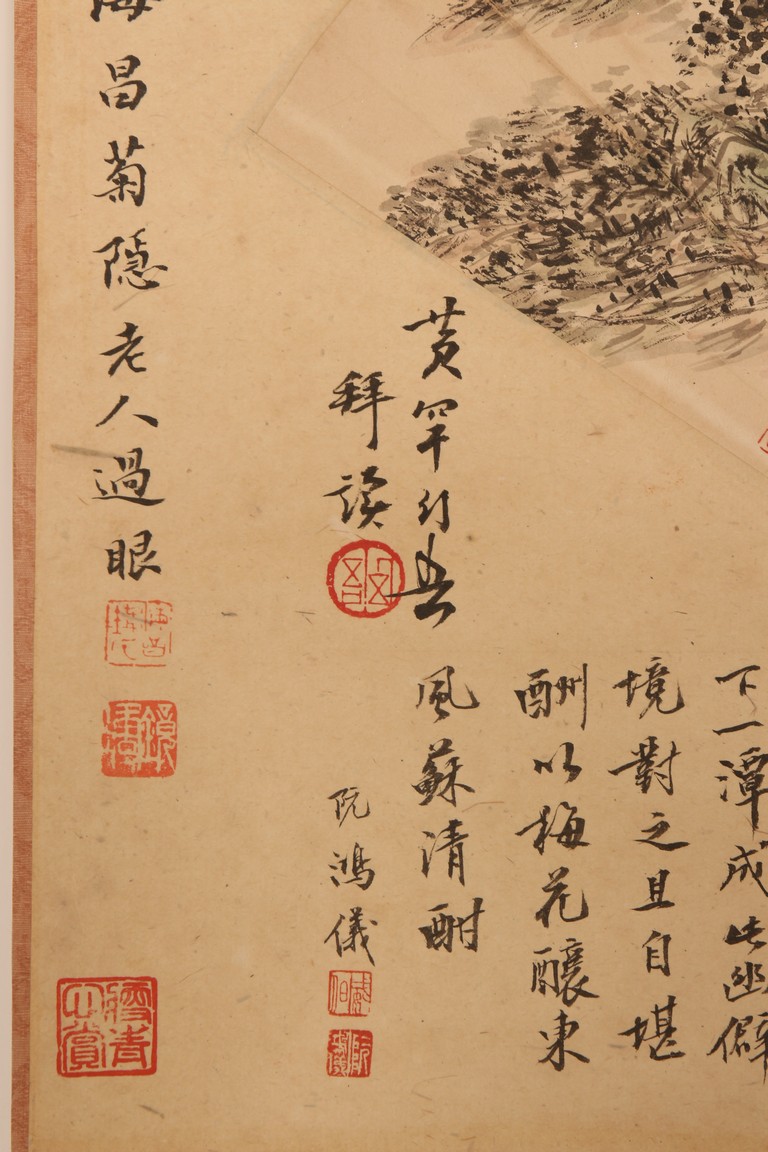 下一潭成此幽僻
境對之且自堪
酬以梅花釀東
風蘇清酣
阮鴻儀
黄罕行
拜讀
海昌菊隱老人過眼